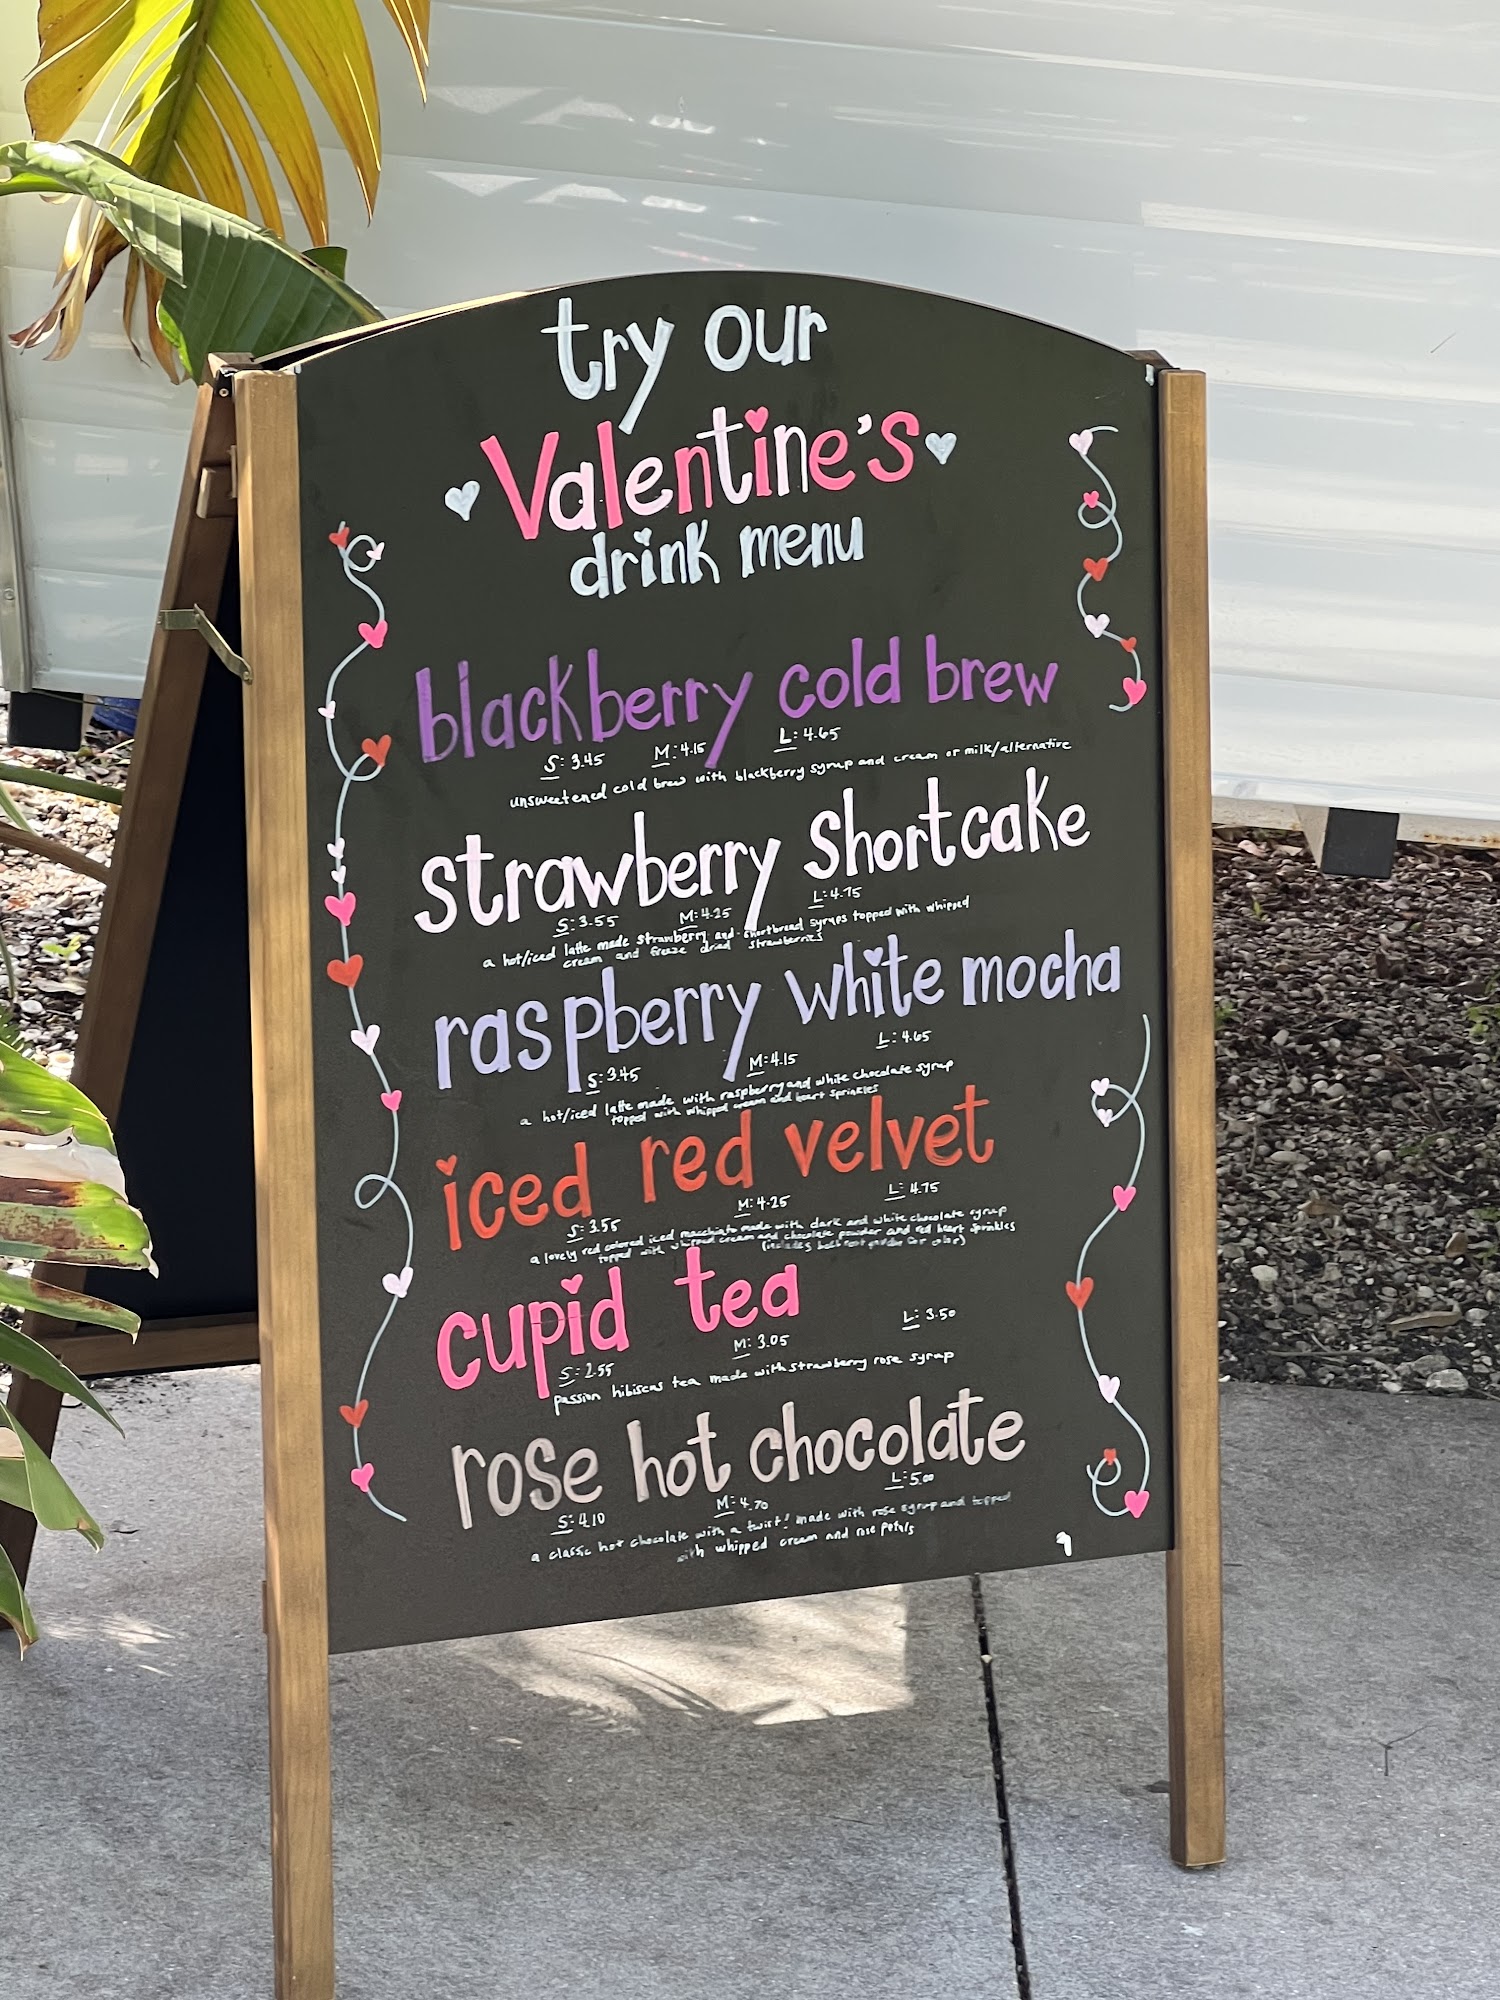 try our
Valentine's
drink menu
blackberry cold brew
S: 3.45 M: 4.15 L: 4.65
unsweetened cold brew with blackberry syrup and cream or milk/alternative
strawberry shortcake
S: 3.55 M: 4.25 L: 4.75
a hot/iced latte made strawberry and shortbread syrups topped with whipped
cream and freeze dried strawberries
raspberry white mocha
S: 3.45 M: 4.15 L: 4.65
a hot/iced latte made with raspberry and white chocolate syrup
topped with whipped cream and heart sprinkles
iced red velvet
S: 3.55 M: 4.25 L: 4.75
a lovely red colored iced macchiato made with dark and white chocolate syrup
topped with whipped cream and chocolate powder and red heart sprinkles
(includes beet root powder for color)
cupid tea
S: 2.55 M: 3.05 L: 3.50
passion hibiscus tea made with strawberry rose syrup
rose hot chocolate
S: 4.10 M: 4.70 L: 5.00
a classic hot chocolate with a twist! made with rose syrup and topped
with whipped cream and rose petals